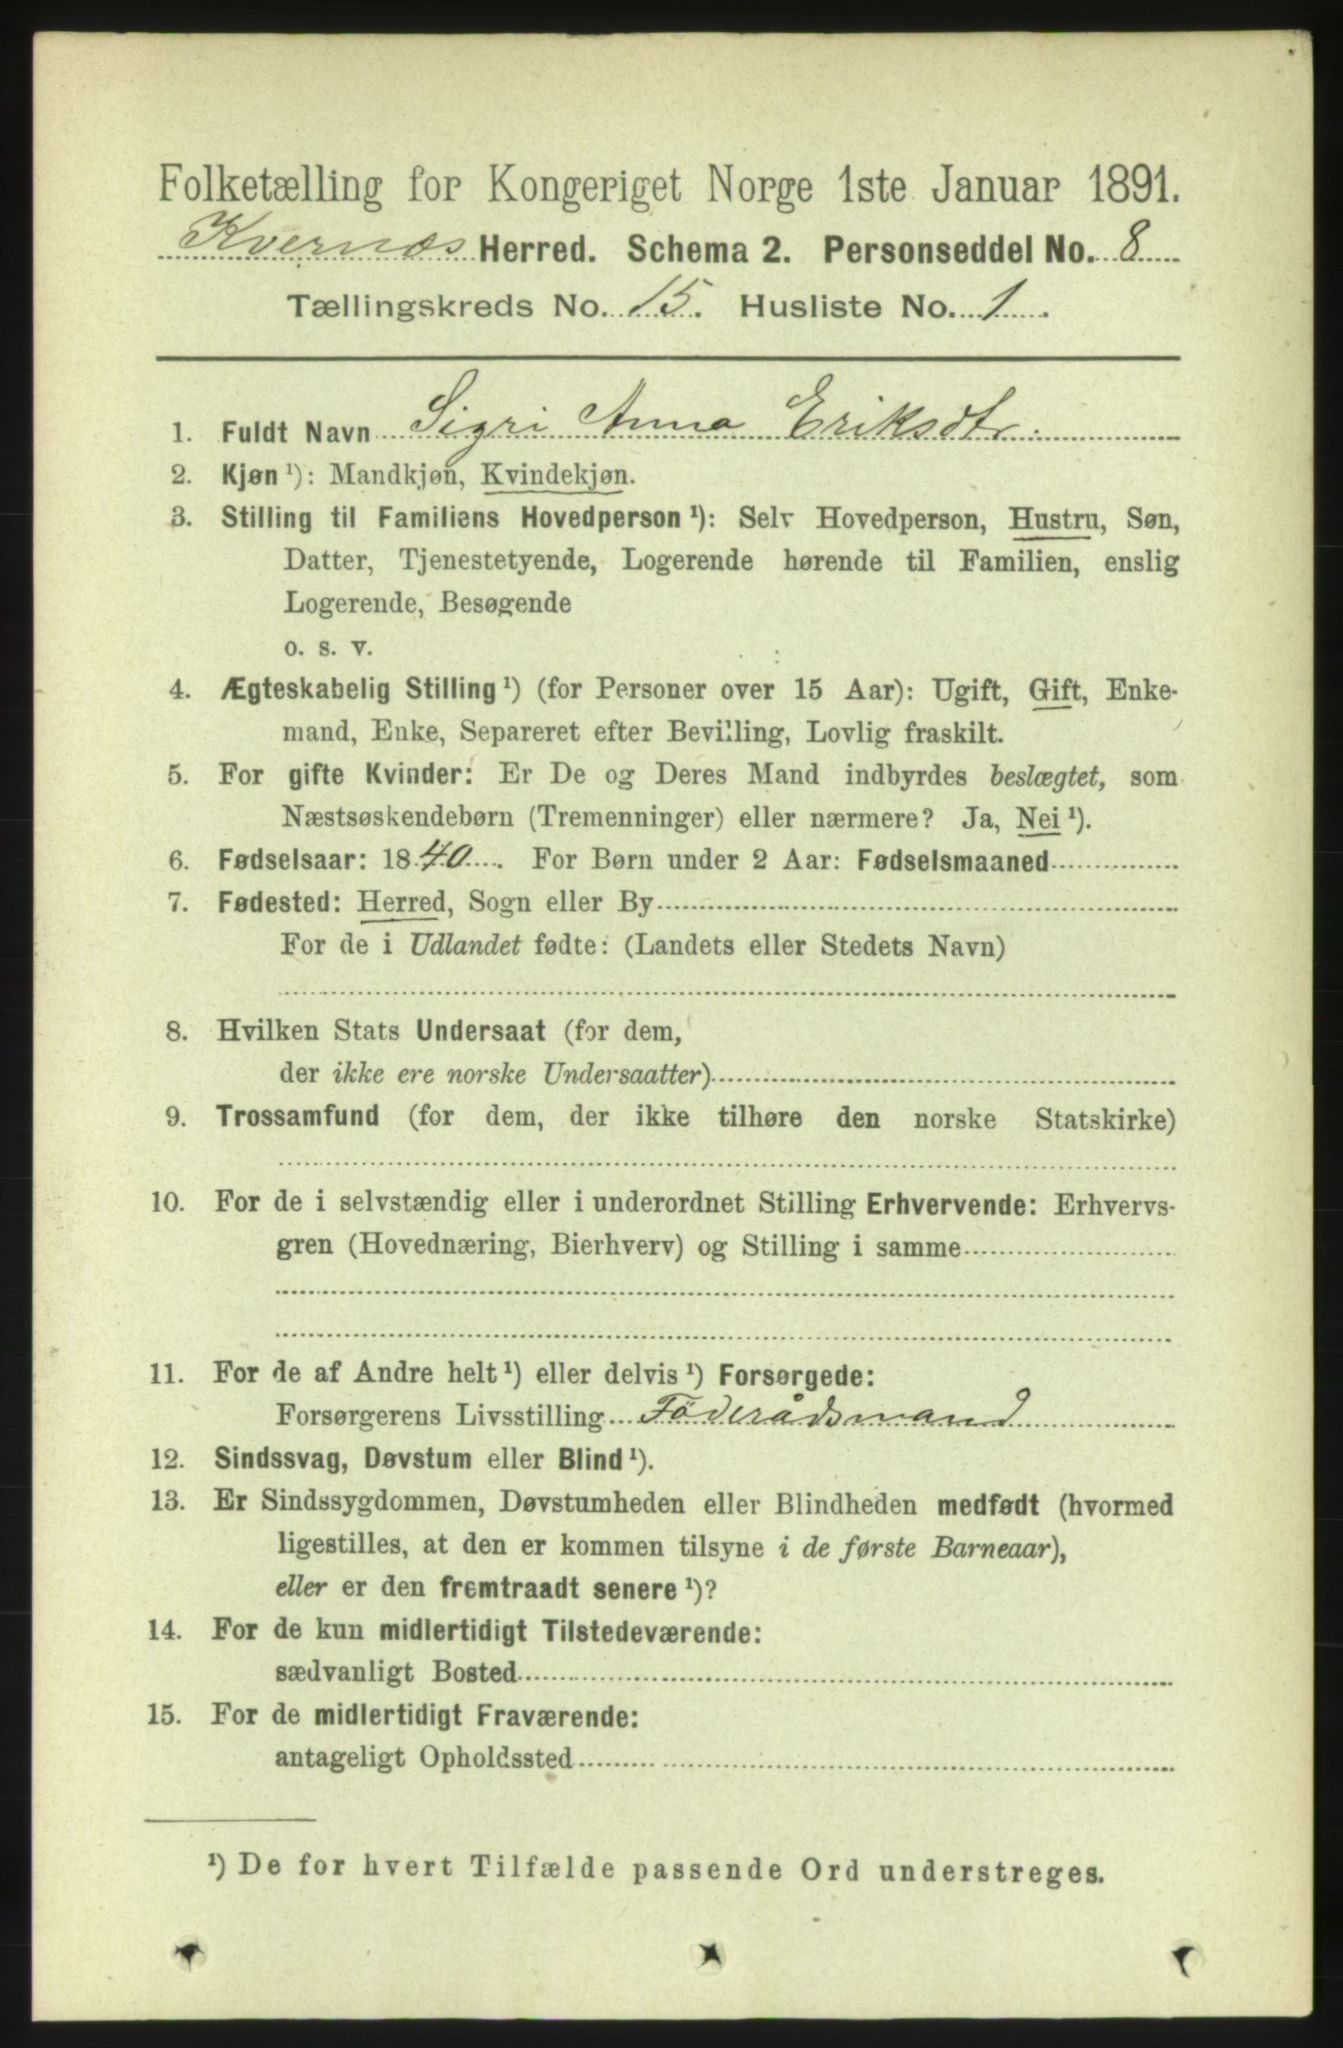 Folketælling for Kongeriget Norge 1ste Januar 1891.
Kvernæs Herred. Schema 2. Personseddel No. 8
Tællingskreds No. 15. Husliste No. 1.
1. Fuldt Navn Sigri Anna Eriksdtr.
2. Kjøn ¹): Mandkjøn, Kvindekjøn.
3. Stilling til Familiens Hovedperson ¹): Selv Hovedperson, Hustru, Søn,
Datter, Tjenestetyende, Logerende hørende til Familien, enslig
Logerende, Besøgende
o. s. v.
4. Ægteskabelig Stilling ¹) (for Personer over 15 Aar): Ugift, Gift, Enke-
mand, Enke, Separeret efter Bevilling, Lovlig fraskilt.
5. For gifte Kvinder: Er De og Deres Mand indbyrdes beslægtet, som
Næstsøskendebørn (Tremenninger) eller nærmere? Ja, Nei ¹).
6. Fødselsaar: 1840. For Børn under 2 Aar: Fødselsmaaned
7. Fødested: Herred, Sogn eller By
For de i Udlandet fødte: (Landets eller Stedets Navn)
8. Hvilken Stats Undersaat (for dem,
der ikke ere norske Undersaatter)
9. Trossamfund (for dem, der ikke tilhøre den norske Statskirke)
10. For de i selvstændig eller i underordnet Stilling Erhvervende: Erhvervs-
gren (Hovednæring, Bierhverv) og Stilling i samme
11. For de af Andre helt ¹) eller delvis ¹) Forsørgede:
Forsørgerens Livsstilling Föderådsmand
12. Sindssvag, Døvstum eller Blind ¹).
13. Er Sindssygdommen, Døvstumheden eller Blindheden medfødt (hvormed
ligestilles, at den er kommen tilsyne i de første Barneaar),
eller er den fremtraadt senere ¹)?
14. For de kun midlertidigt Tilstedeværende:
sædvanligt Bosted
15. For de midlertidigt Fraværende:
antageligt Opholdssted
¹) De for hvert Tilfælde passende Ord understreges.